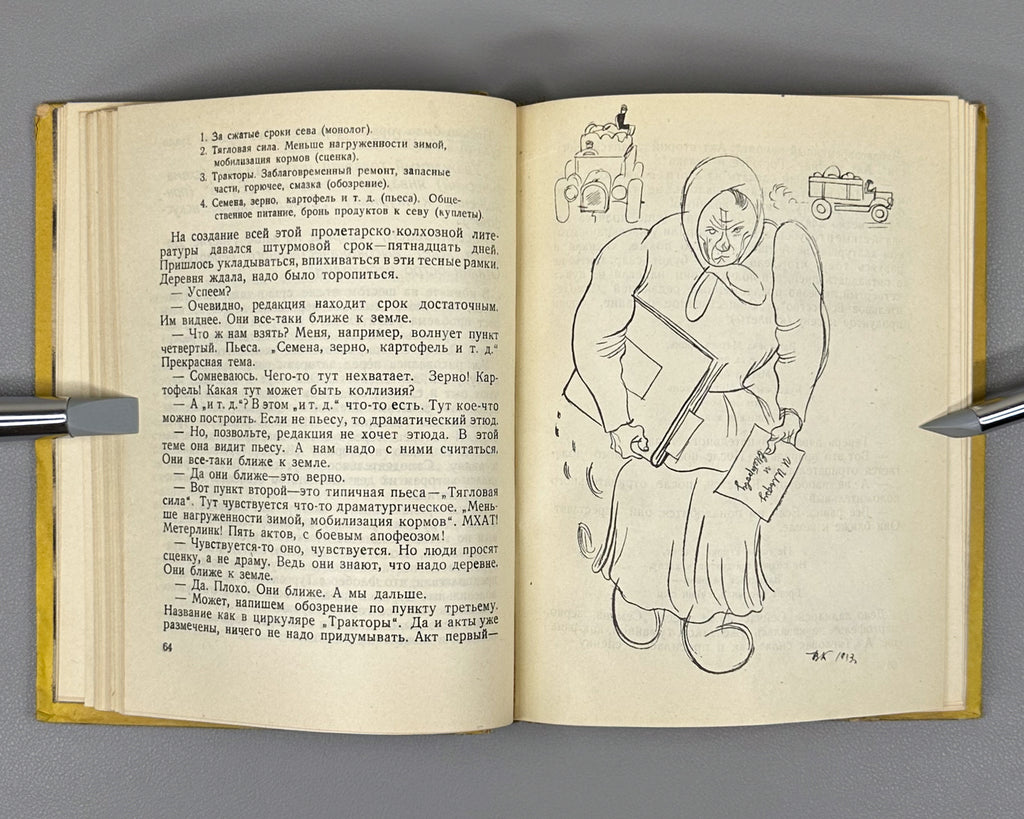 1. За сжатые сроки сева (монолог).
2. Тягловая сила. Меньше нагруженности зимой,
мобилизация кормов (сценка).
3. Тракторы. Заблаговременный ремонт, запасные
части, горючее, смазка (обозрение).
4. Семена, зерно, картофель и т. д. (пьеса). Обще-
ственное питание, бронь продуктов к севу (куплеты).
На создание всей этой пролетарско-колхозной лите-
ратуры давался штурмовой срок—пятнадцать дней.
Пришлось укладываться, впихиваться в эти тесные рамки.
Деревня ждала, надо было торопиться.
— Успеем?
— Очевидно, редакция находит срок достаточным.
Им виднее. Они все-таки ближе к земле.
— Что ж нам взять? Меня, например, волнует пункт
четвертый. Пьеса. „Семена, зерно, картофель и т. д.“
Прекрасная тема.
— Сомневаюсь. Чего-то тут нехватает. Зерно! Кар-
тофель! Какая тут может быть коллизия?
— А „и т. д.“? В этом „и т. д.“ что-то есть. Тут кое-что
можно построить. Если не пьесу, то драматический этюд.
— Но, позвольте, редакция не хочет этюда. В этой
теме она видит пьесу. А нам надо с ними считаться.
Они все-таки ближе к земле.
— Да они ближе—это верно.
— Вот пункт второй—это типичная пьеса—„Тягловая
сила“. Тут чувствуется что-то драматургическое. „Мень-
ше нагруженности зимой, мобилизация кормов“. МХАТ!
Метерлинк! Пять актов, с боевым апофеозом!
— Чувствуется-то оно, чувствуется. Но люди просят
сценку, а не драму. Ведь они знают, что надо деревне.
Они ближе к земле.
— Да. Плохо. Они ближе. А мы дальше.
— Может, напишем обозрение по пункту третьему.
Название как в циркуляре „Тракторы“. Да и акты уже
размечены, ничего не надо придумывать. Акт первый—
64